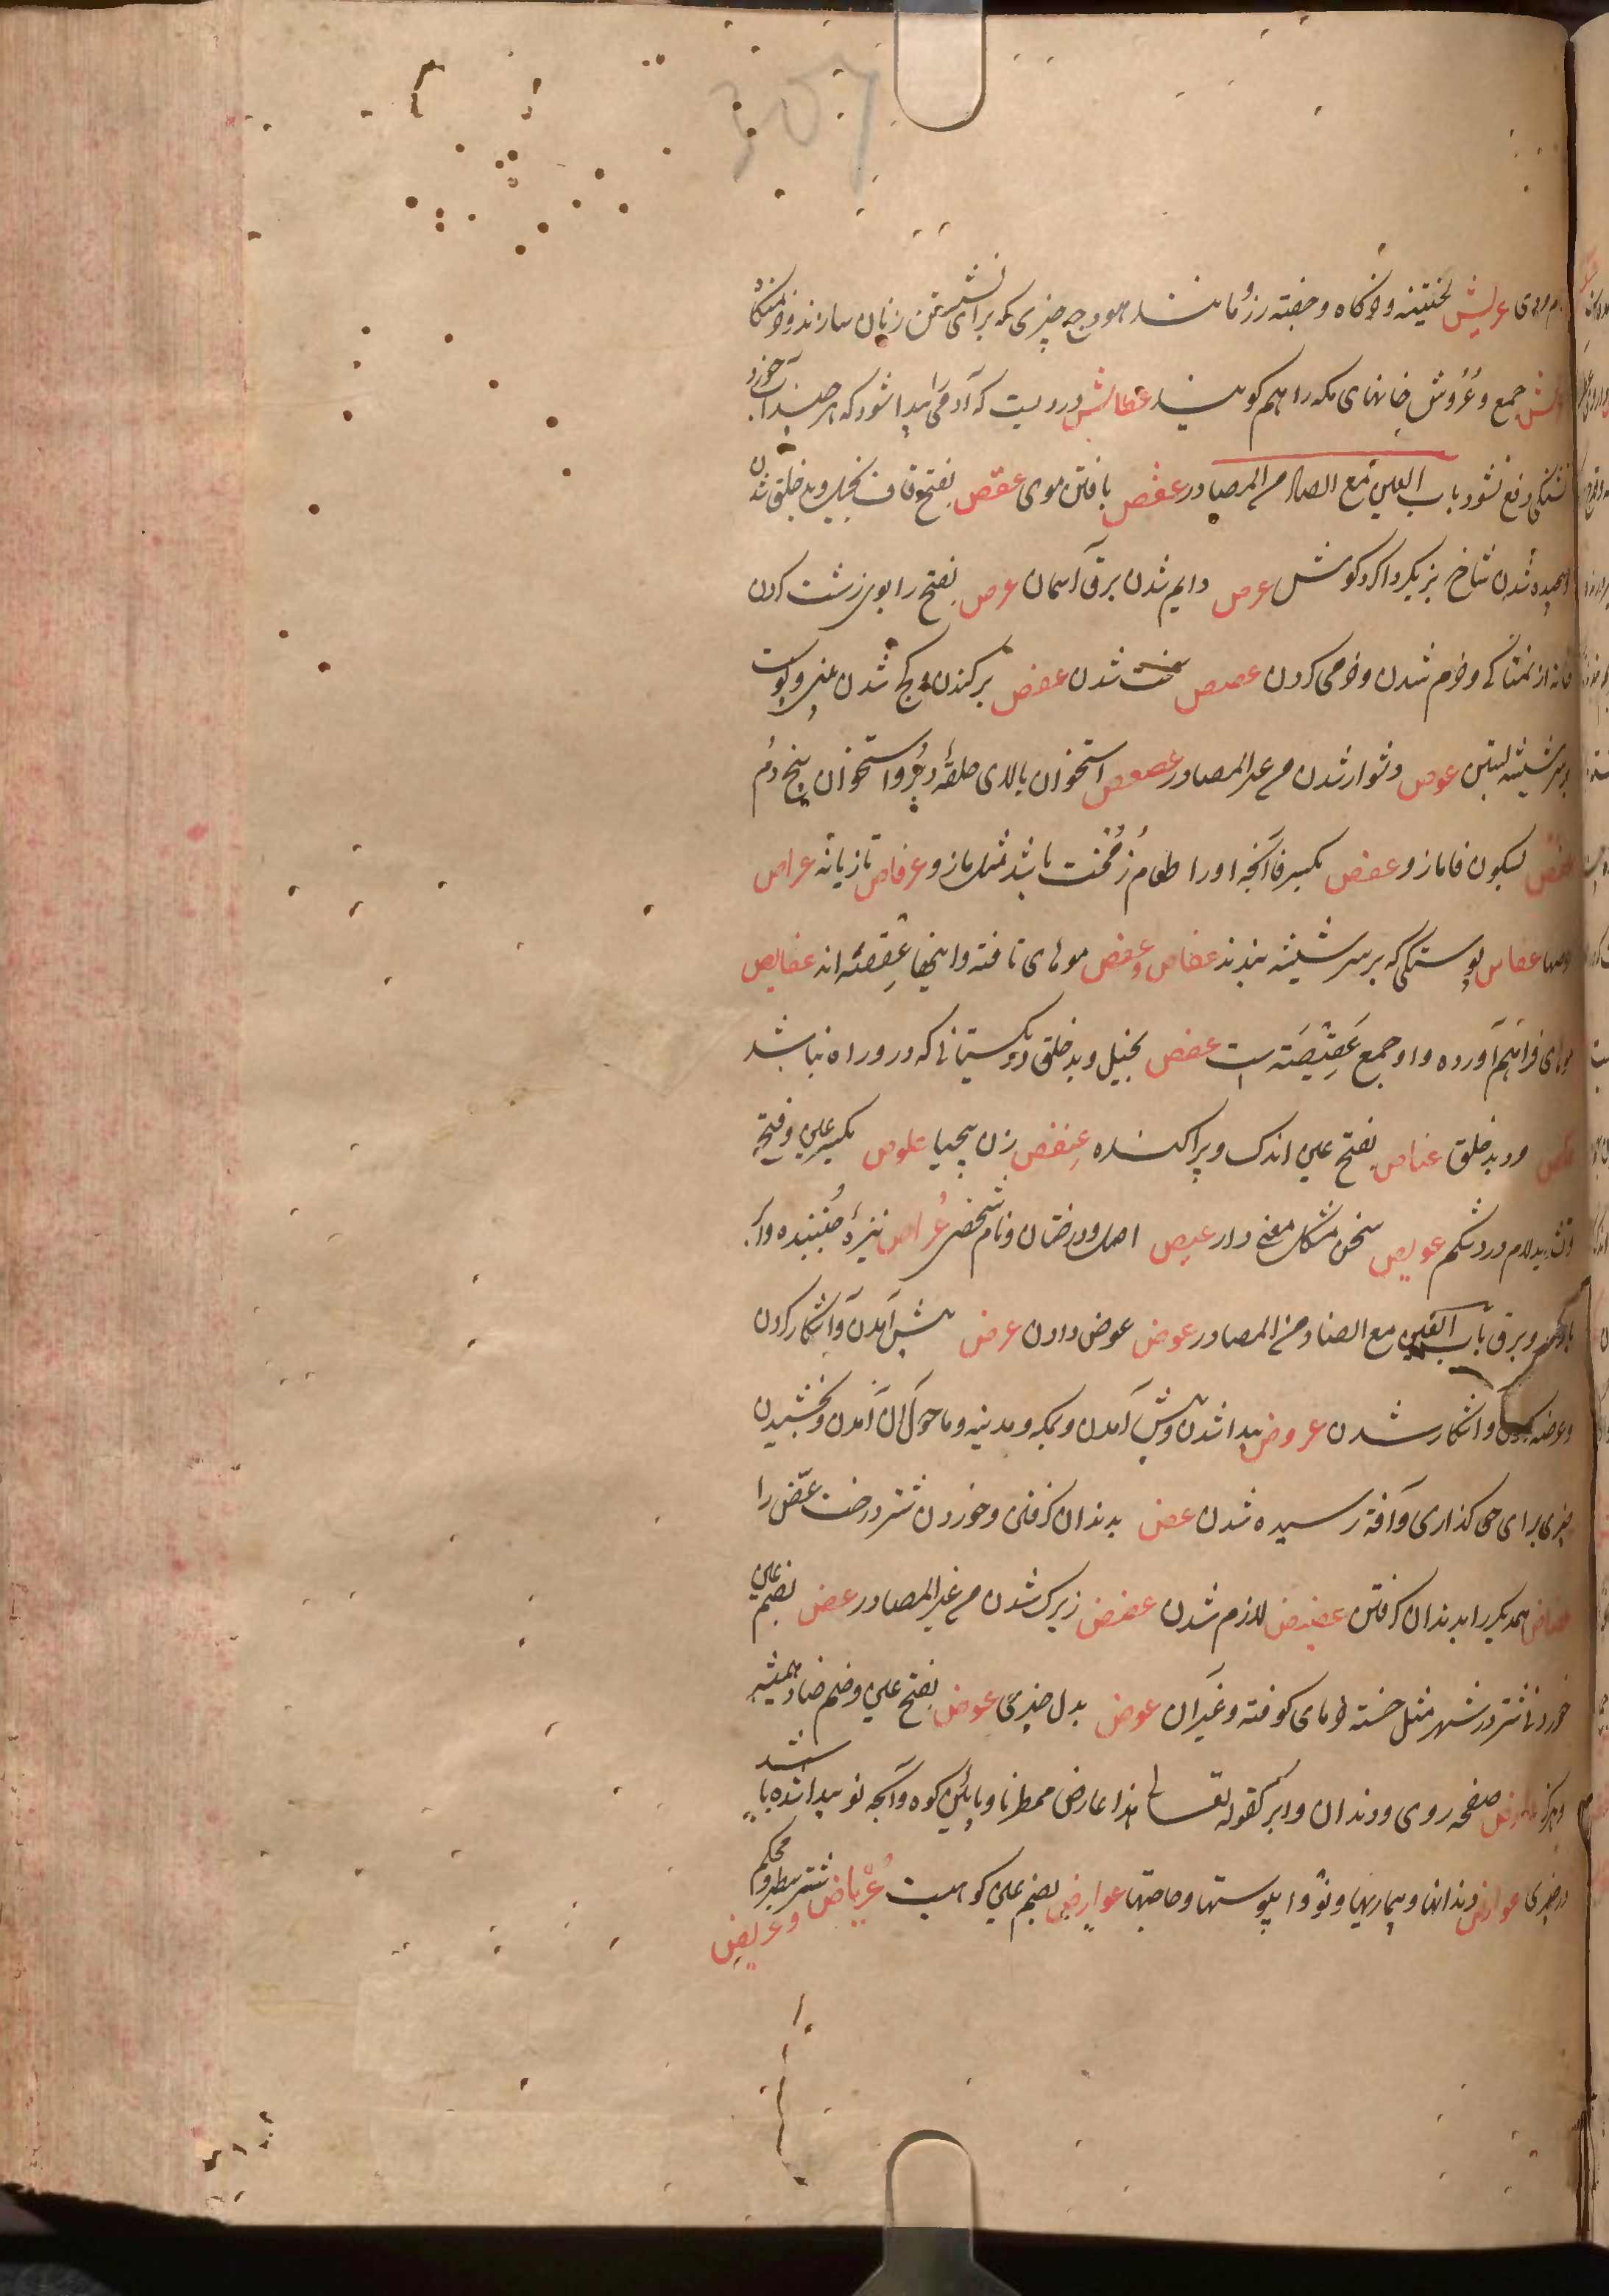 عریش نخستینه و خرگاه و خفته رز و مانند هودج چیزی که برای نشستن زنان سازند و خرمنگاه
عرش جمع و عُرُوش خانهای مکه را هم گویند عطاش دردیست که آدمی را پیدا شود که هرچند آب خورد
تشنگی دفع نشود باب العین مع الصاد من المصادر عقص بافتن موی عقص بفتح قاف بخیل و بدخلق شدن
و پیچیده شدن شاخ بز بگرداگرد گوش عرص دایم شدن برق آسمان عرص بفتح را بوی زشت کردن
خانه از نمناکی و خرم شدن و خرمی کردن عصص سخت شدن عفص برکندن و کج شدن بینی و پوست
بر سر شیشه بستن عوص دشوار شدن من غیر المصادر عصعص استخوان بالای حلقهٔ دبر و استخوان بیخ دُم
عفص بسکون فا مازو عفص بکسر فا آنچه او را طعام زُمُخت باشد مثل مازو عرفاص تازیانه عراص
عفاص پوستکی که بر سر شیشه بندند عقاص و عقص مویهای تافته واینها عِقصَه اند عقایص
مویهای فراهم آورده و او جمع عَقِیصَته است عقص بخیل و بدخلق و ریگستانی که درو راه نباشد
عکص مرد بدخلق عناص بفتح عین اندک و پراکنده عِنفص زن بیحیا علوص بکسر عین و فتح
و تشدید لام درد شکم عویص سخن مشکل معنی دار عیص اصل و درختان و نام شخصی عُراص نیزهٔ جُنبنده و ابر
با رعد و برق باب العین مع الضاد من المصادر عوض عوض دادن عرض پیش آمدن و آشکار کردن
و عرضه و آشکار شدن عروض پیدا شدن و پیش آمدن و بمکه و مدینه و ما حول آن آمدن و بخشیدن
چیزی برای حق گذاری و آفة رسیده شدن عض بدندان گرفتن و خوردن شتر درخت عضّ را
عضاض همدیگر را بدندان گرفتن عضیض لازم شدن عضض زیرک شدن من غیر المصادر عض بضم عین
خوردنی شتر در شهر مثل خسته خرمای کوفته و غیر آن عوض بدل چیزی عوض بفتح عین و ضم ضاد همیشه
و هرگز عارض صفحه روی و دندان و ابر کقوله تعالی هذا عارض ممطرنا و پایین کوه و آنچه نو پیدا شده باشد
در چیزی عوارض دندانها و بیماریها و پوستها و حاجتها عوارض بضم عین کوهیست عُرْیاض شتر سطبر و محکم
و عریض